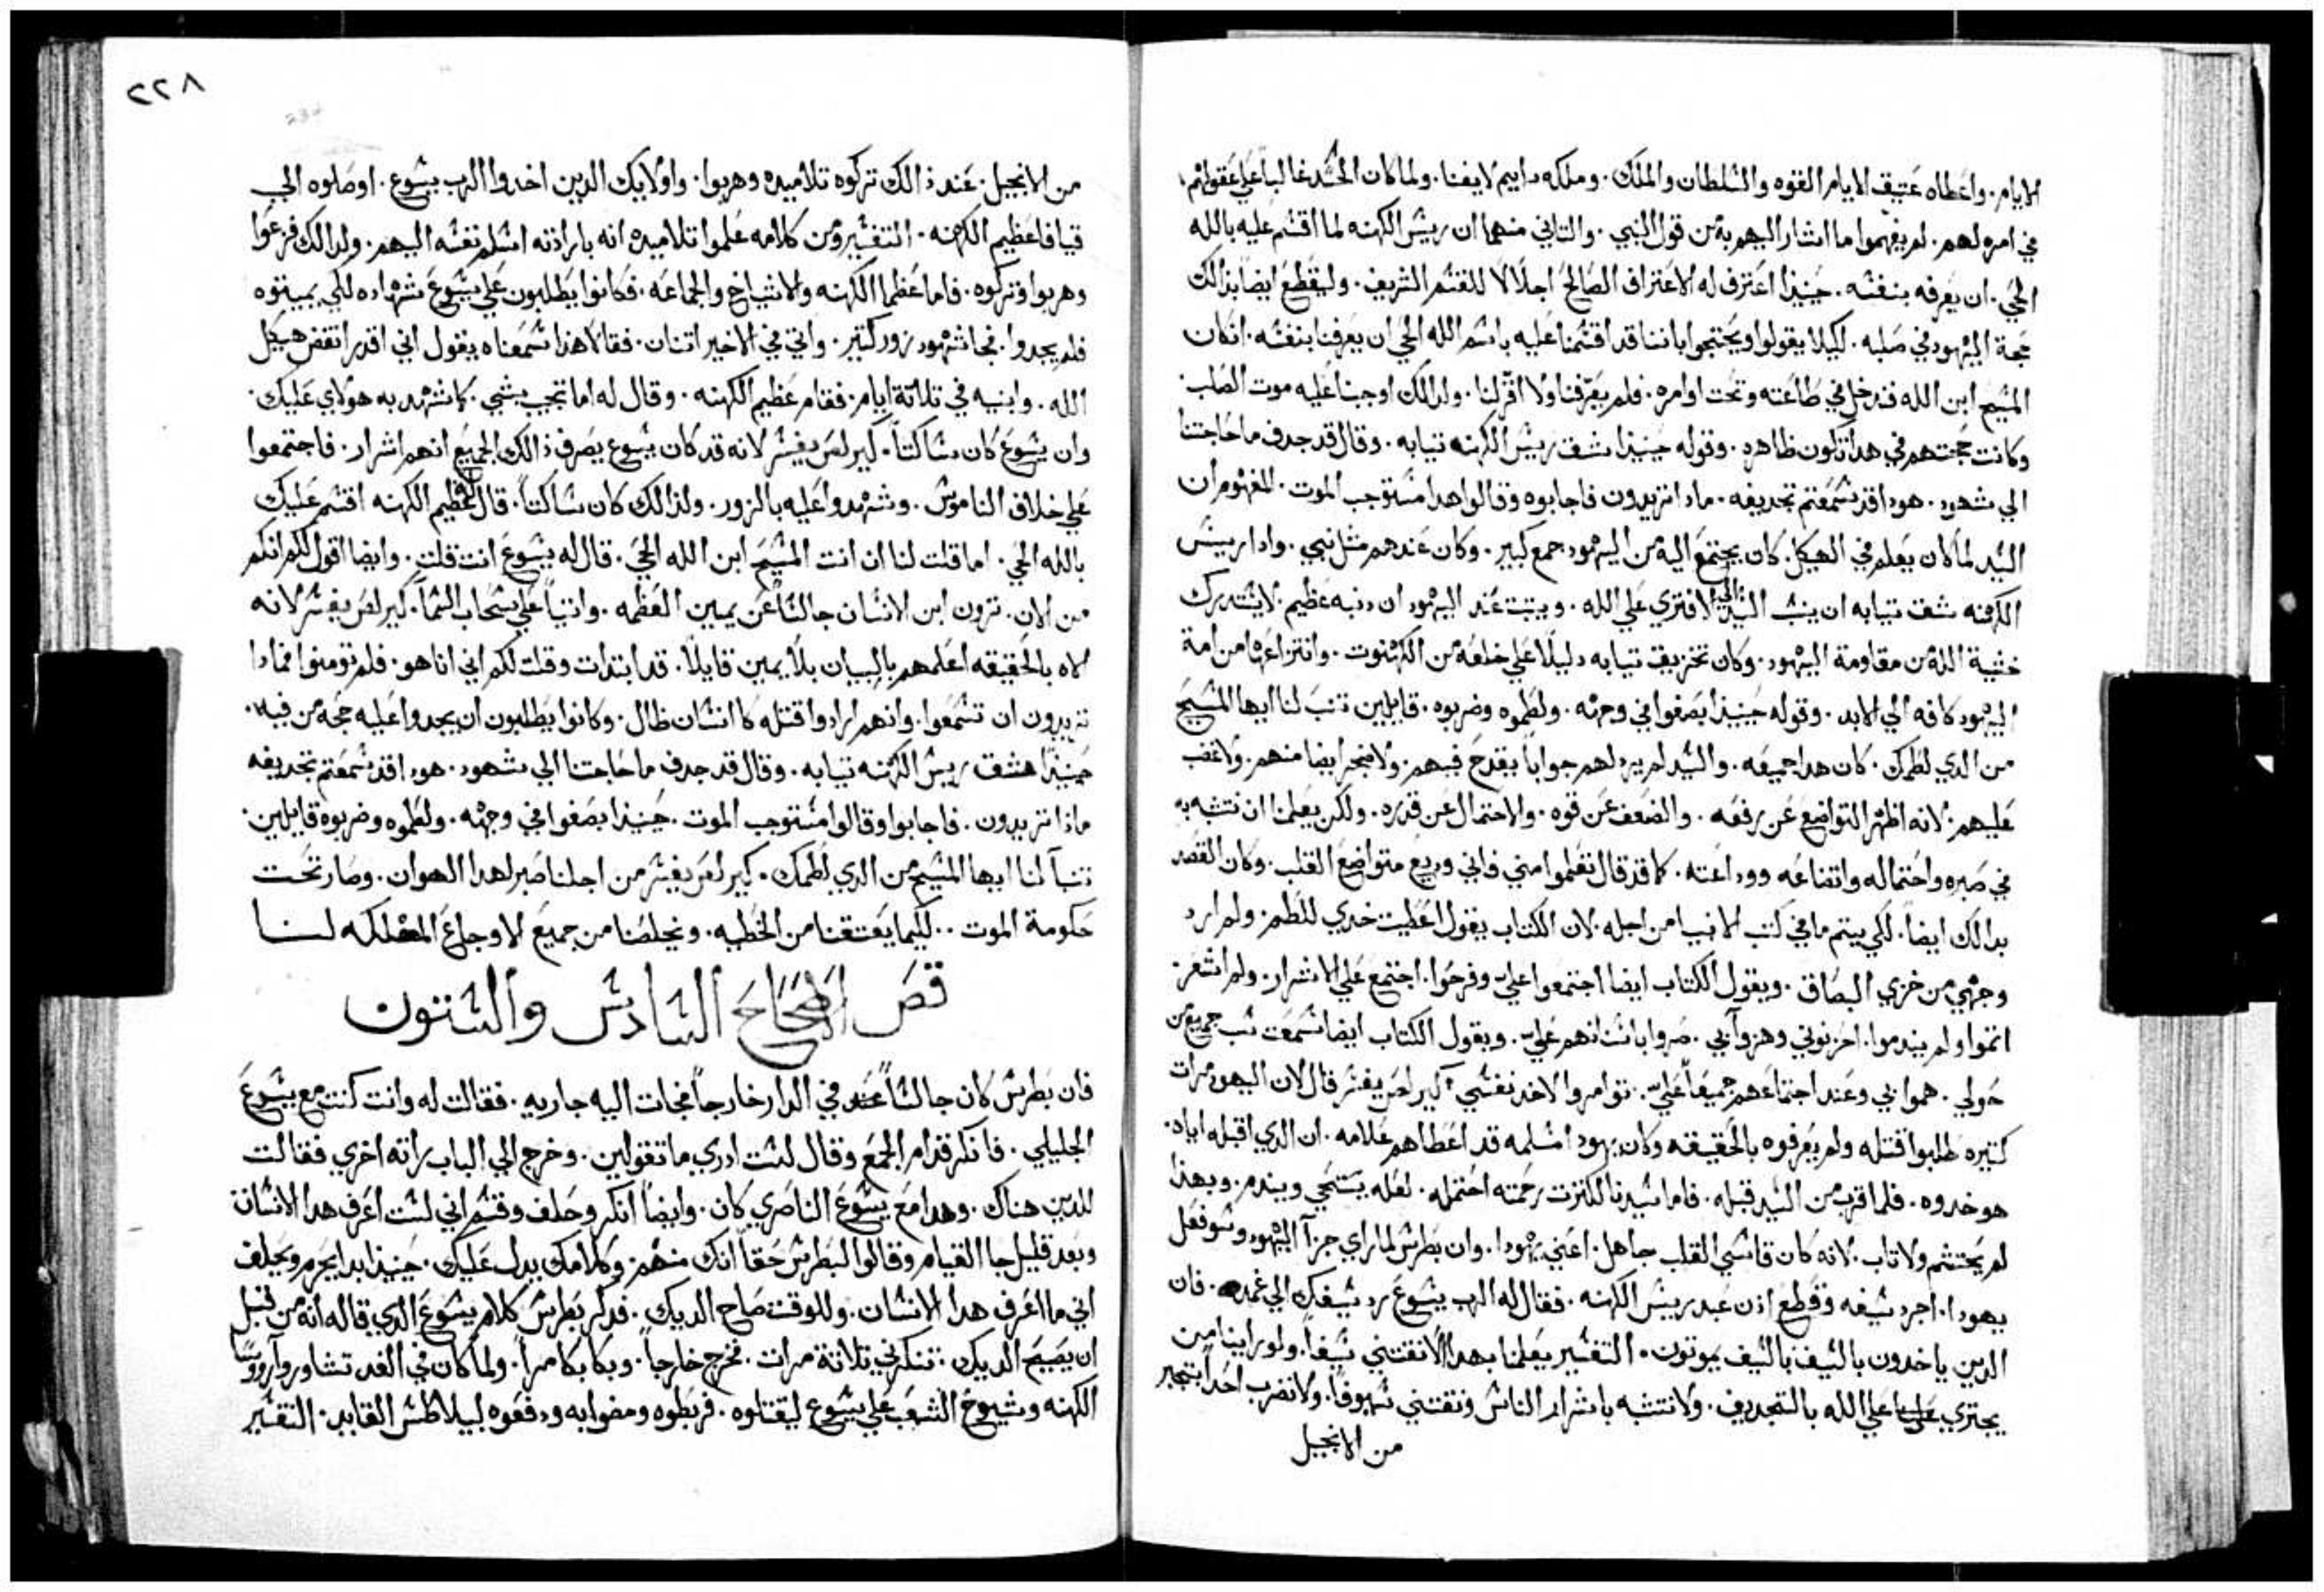 الايام. واعطاه عتيق الايام القوه والسلطان والملك. وملكه دايم لايفنا. ولما كان الحسد غالباً علي عقولهم
في امره لهم. لم يفهموا ما اشار اليهم به من قول النبي. والتاني منهما ان ريس الكهنه لما اقسم عليه بالله
الحي. ان يعرفه بنفسه. حينيذا اعترف له الاعتراف الصالح اجلالا للقسم الشريف. وليقطع ايضا بذالك
حجة اليهود في صلبه. ليلا يقولوا ويحتجوا باننا قد اقسمنا عليه باسم الله الحي ان يعرفنا بنفسه. ان كان
المسيح ابن الله فندخل في طاعته وتحت اوامره. فلم يعرفنا ولا اقر لنا. ولدالك اوجبنا عليه موت الصلب.
وكانت حجتهم في هدا تكون ظاهره. وقوله حينيذا شق ريس الكهنه تيابه. وقال قد جدف ما حاجتنا
الي شهود. هودا قد سمعتم تجديفه. مادا تريدون فاجابوه وقالوا هدا مستوجب الموت. المفهوم ان
السيد لما كان يعلم في الهيكل. كان يجتمع اليه من اليهود جمع كبير. وكان عندهم مثل نبي. وادا ريس
الكهنه شق تيابه ان ينسب السيد الي الافتري علي الله. ويتبت عند اليهود ان دنبه عظيم. لا يستدرك
خشية الله من مقاومة اليهود. وكان تخزيق تيابه دليلا علي خلعه من الكهنوت. وانتزاعها من امة
اليهود كافه الي الابد. وقوله حينيذا بصقوا في وجهه. ولطموه وضربوه. قايلين تنب لنا ايها المسيح
من الدي لطمك. كان هدا جميعه. والسيد لم يرد لهم جواباً يقدح فيهم. ولا ضجر ايضا منهم. ولا غضب
عليهم. لانه اظهر التواضع عن رفعه. والضعف عن قوه. والاحتمال عن قدره. ولكن يعلمنا ان نتشبه به
في صبره واحتماله واتضاعه ووداعته. كما قد قال تعلموا مني فاني وديع متواضع القلب. وكان القصد
بدالك ايضاً. لكي يتم ما في كتب الانبيا من اجله. لان الكتاب يقول اعطيت خدي للطم. ولم ارد
وجهي من خزي البصاق. ويقول الكتاب ايضا اجتمعوا علي وفرحوا. اجتمع علي الاشرار. ولم اشعر.
اتموا ولم يندموا. احزنوني وهزوا بي. صروا باسنانهم علي. ويقول الكتاب ايضا سمعت سب جميع من
حولي. هموا بي وعند اجتماعهم جميعاً علي. توامروا لاخد نفسي. كيرلص يفسر قال لان اليهود مرات
كتيره طلبوا قتله ولم يعرفوه بالحقيقه وكان يهودا مسلمه قد اعطاهم علامه. ان الدي اقبله اياه.
هو خدوه. فلما اقرب من السيد قبله. فاما سيدنا لكترت رحمته احتمله. لعله يستحي ويندم. وبهذا
لم يحتشم ولا تاب. لانه كان قاسي القلب جاهل. اعني يهودا. وان بطرس لما راي جزآ اليهود وسو فعل
يهودا. اجرد سيفه وقطع ادن عبد ريس الكهنه. فقال له الرب يسوع رد سيفك الي غمده. فان
الدين ياخدون بالسيف بالسيف يموتون. التفسير يعلمنا بهدا الا نقتني سيفاً. ولو راينا من
يجتري علي الله بالتجديف. ولا نتشبه باشرار الناس ونقتني سيوفا. ولا نضرب احدا يتجبر
من الانجيل
٢٢٨
من الانجيل. عند ذالك تركوه تلاميده وهربوا. واولايك الدين اخدوا الرب يسوع. اوصلوه الي
قيافا عظيم الكهنه. التفسير ومن كلامه علموا تلاميده انه بارادته اسلم نفسه اليهم. ولدالك فزعوا
وهربوا وتركوه. فاما عظما الكهنه والاشياخ والجماعه. فكانوا يطلبون علي يسوع شهاده لكي يميتوه
فلم يجدوا. فجا شهود زور كتير. واتي في الاخير اتنان. فقالا هذا سمعناه يقول اني اقدر انقض هيكل
الله. وابنيه في تلاتة ايام. فقام عظيم الكهنه. وقال له اما تجيب بشي. كما شهد به هولاي عليك.
وان يسوع كان ساكتاً. كيرلص يفسر لانه قد كان يسوع يعرف ذالك الجميع انهم اشرار. فاجتمعوا
علي خلاف الناموس. وشهدوا عليه بالزور. ولذالك كان ساكتاً. قال له عظيم الكهنه اقسم عليك
بالله الحي. اما قلت لنا ان انت المسيح ابن الله الحي. قال له يسوع انت قلت. وايضا اقول لكم انكم
من الان. ترون ابن الانسان جالساً عن يمين العظمه. واتياً علي سحاب السماً. كيرلص يفسر لانه
الاه بالحقيقه اعلمهم بالبيان بلا يمين قايلاً. قد ابتدات وقلت لكم اني انا هو. فلم تومنوا فمادا
تريدون ان تسمعوا. وانهم ارادوا قتله كا انسان ظال. وكانوا يطلبون ان يجدوا عليه حجه من فيه.
حينيذا شق ريس الكهنه تيابه. وقال قد جدف ما حاجتنا الي شهود. هودا قد سمعتم تجديفه
ماذا تريدون. فاجابوا وقالوا مستوجب الموت. حينيذا بصقوا في وجهه. ولطموه وضربوه قايلين.
تنبآ لنا ايها المسيح من الدي لطمك. كيرلص يفسر من اجلنا صبر لهدا الهوان. وصار تحت
حكومة الموت.. لكيما يعتقنا من الخطيه. ويخلصنا من جميع الاوجاع المهلكه لنا
قص اصحاح السادس والستون
فان بطرس كان جالساً عند في الدار خارجاً فجات اليه جاريه. فقالت له وانت كنت مع يسوع
الجليلي. فانكر قدام الجمع وقال لست ادري ما تقولين. وخرج الي الباب راته اخري فقالت
للدين هناك. وهدا مع يسوع الناصري كان. وايضاً انكر وحلف وقسم اني لست اعرف هدا الانسان
وبعد قليل جا القيام وقالوا لبطرس حقاً انك منهم وكلامك يدل عليك. حينيذا بدا يحرم ويحلف
اني ما اعرف هدا الانسان. وللوقت صاح الديك. فدكر بطرس كلام يسوع الدي قاله انه من قبل
ان يصيح الديك. تنكرني تلاتة مرات. فخرج خارجاً. وبكا بكا مراً. ولما كان في الغد تشاوروا روسا
الكهنه وشيوخ الشعب علي يسوع ليقتلوه. فربطوه ومضوا به ودفعوه لبيلاطس القايد. التفسير